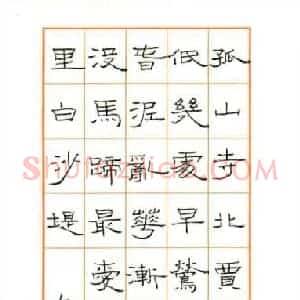 孤山寺北賈
低幾處早鶯
春泥亂華漸
沒馬蹄最愛
里白沙堤